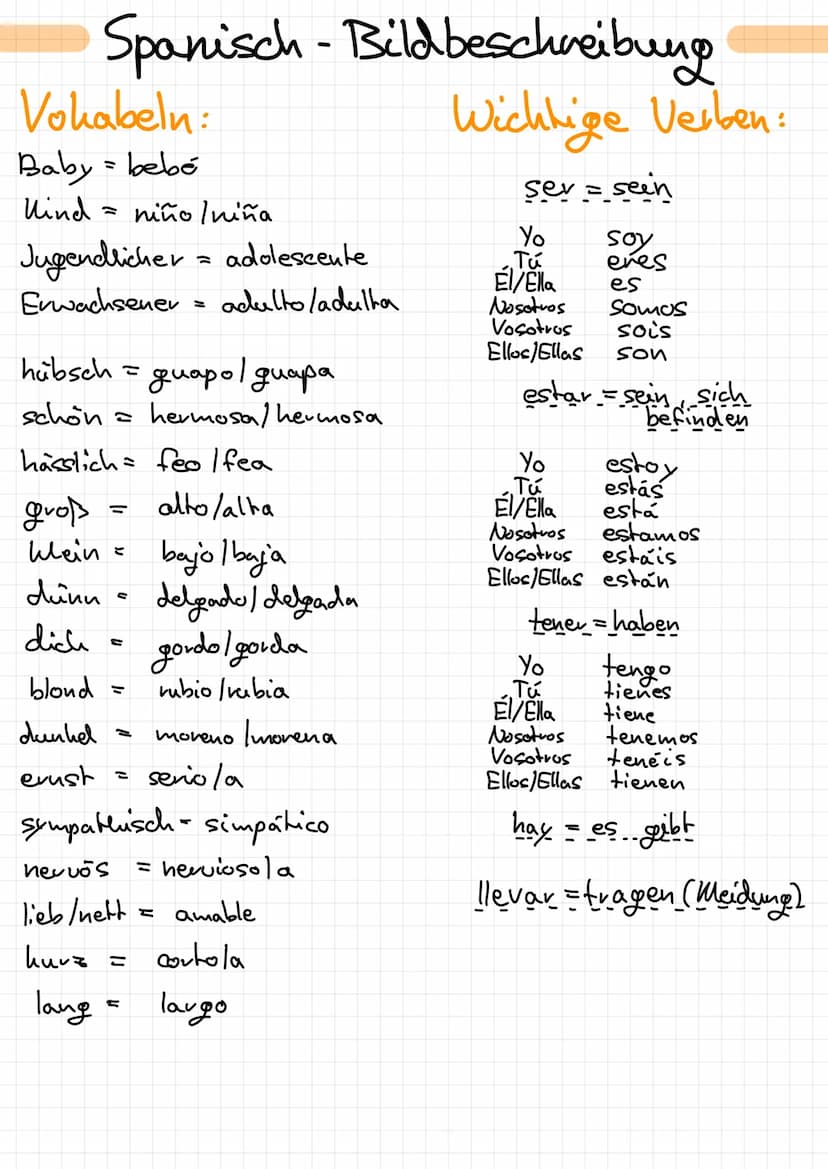 Spanisch - Bildbeschreibung
Vokabeln:
Baby = bebé
Kind = niño/niña
Jugendlicher = adolescente
Erwachsener = adulto/adulta
hübsch = guapo/guapa
schön = hermosa/hermosa
hässlich = feo/fea
groß = alto/alta
klein = bajo/baja
dünn = delgado/delgada
dick = gordo/gorda
blond = rubio/rubia
dunkel = moreno/morena
ernst = serio/a
sympathisch = simpático
nervös = nervioso/a
lieb/nett = amable
kurz = corto/a
lang = largo
Wichtige Verben:
ser = sein
Yo soy
Tú eres
Él/Ella es
Nosotros somos
Vosotros sois
Ellos/Ellas son
estar = sein, sich
befinden
Yo estoy
Tú estás
Él/Ella está
Nosotros estamos
Vosotros estáis
Ellos/Ellas están
tener = haben
Yo tengo
Tú tienes
Él/Ella tiene
Nosotros tenemos
Vosotros tenéis
Ellos/Ellas tienen
hay = es gibt
llevar = tragen (Kleidung)